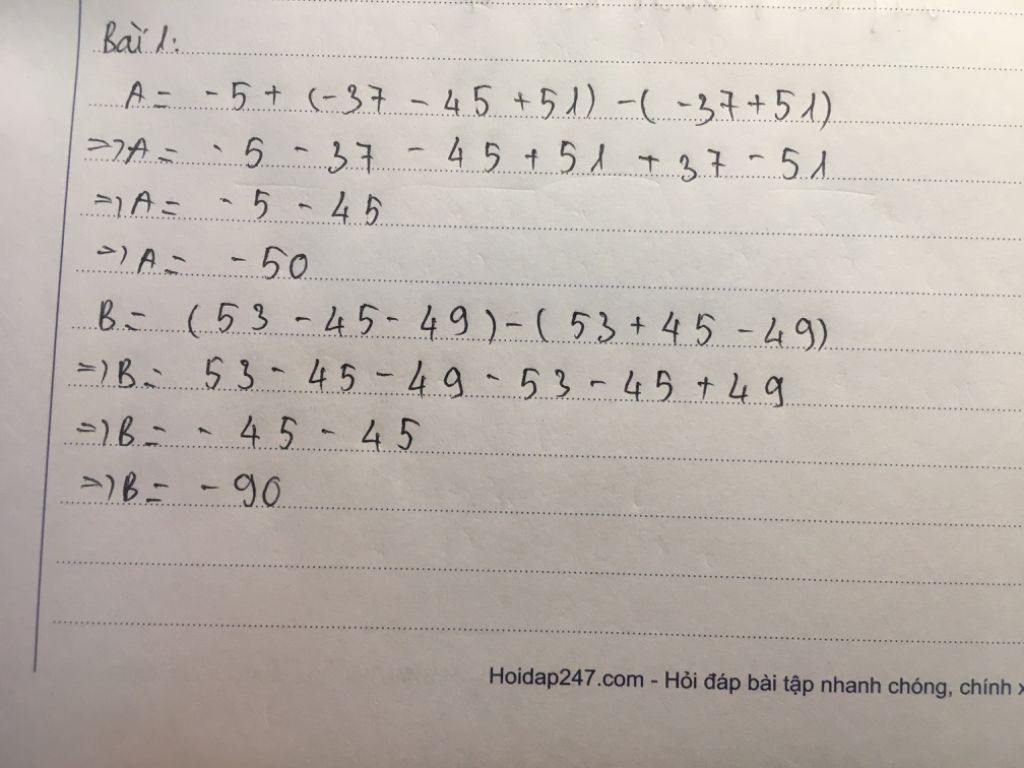 Bài 1:
A = -5 + (-37 - 45 + 51) - (-37 + 51)
=> A = -5 - 37 - 45 + 51 + 37 - 51
=> A = -5 - 45
=> A = -50
B = (53 - 45 - 49) - (53 + 45 - 49)
=> B = 53 - 45 - 49 - 53 - 45 + 49
=> B = -45 - 45
=> B = -90
Hoidap247.com - Hỏi đáp bài tập nhanh chóng, chính